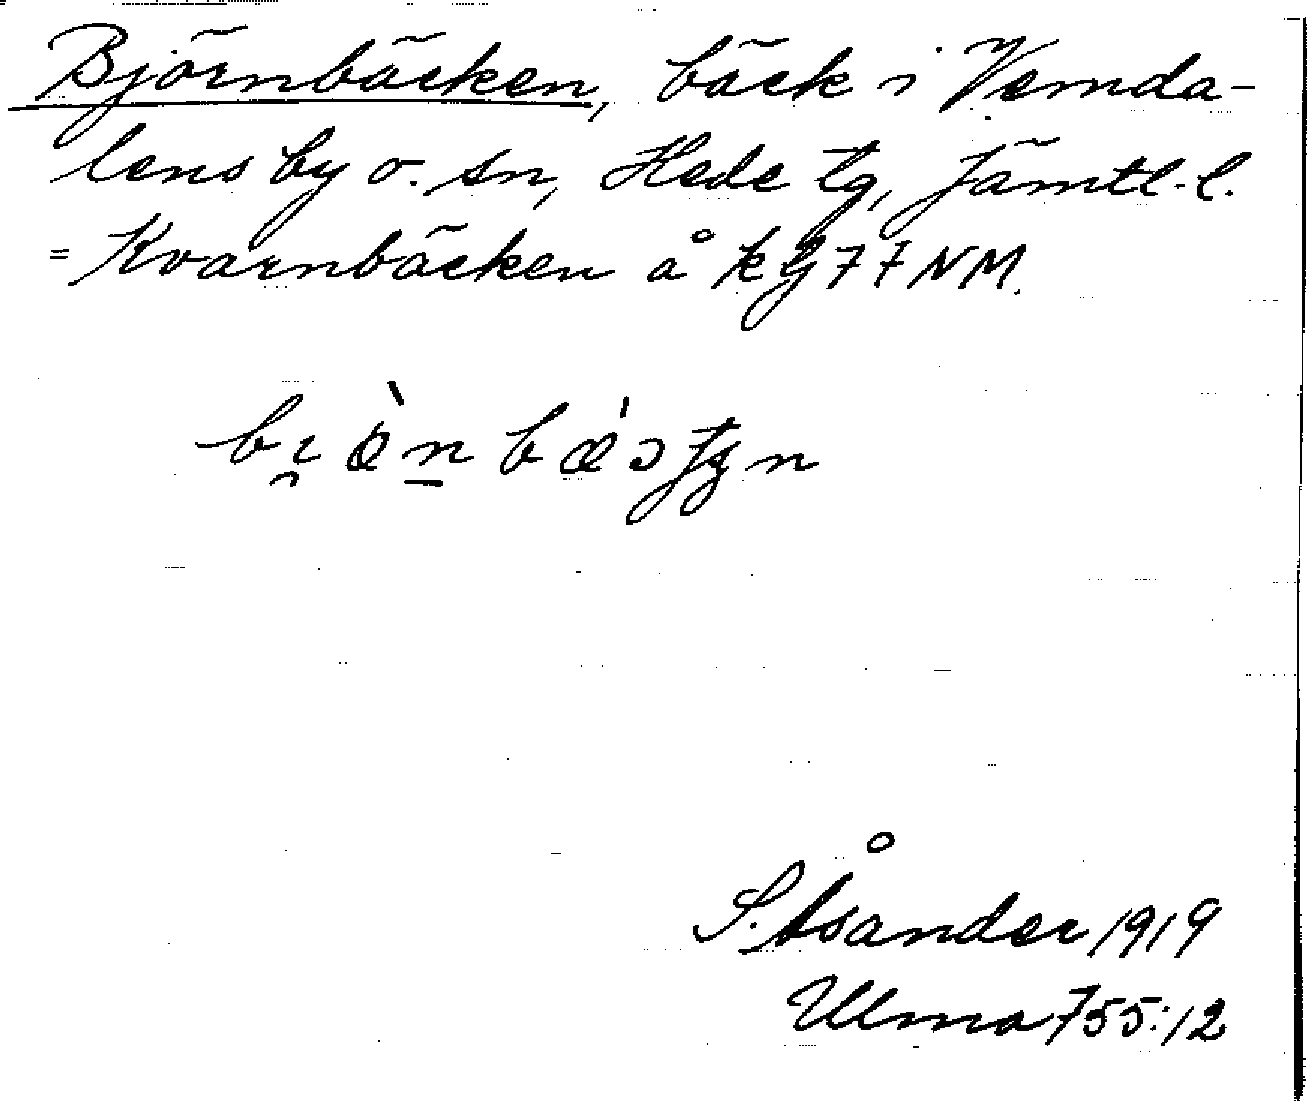 Björnbäcken, bäck i Vemda-
lens by o. sn, Hede tg, Jämtl. l.
= Kvarnbäcken å kg 77 NM.
S. Åsander 1919
Ulma 755:12